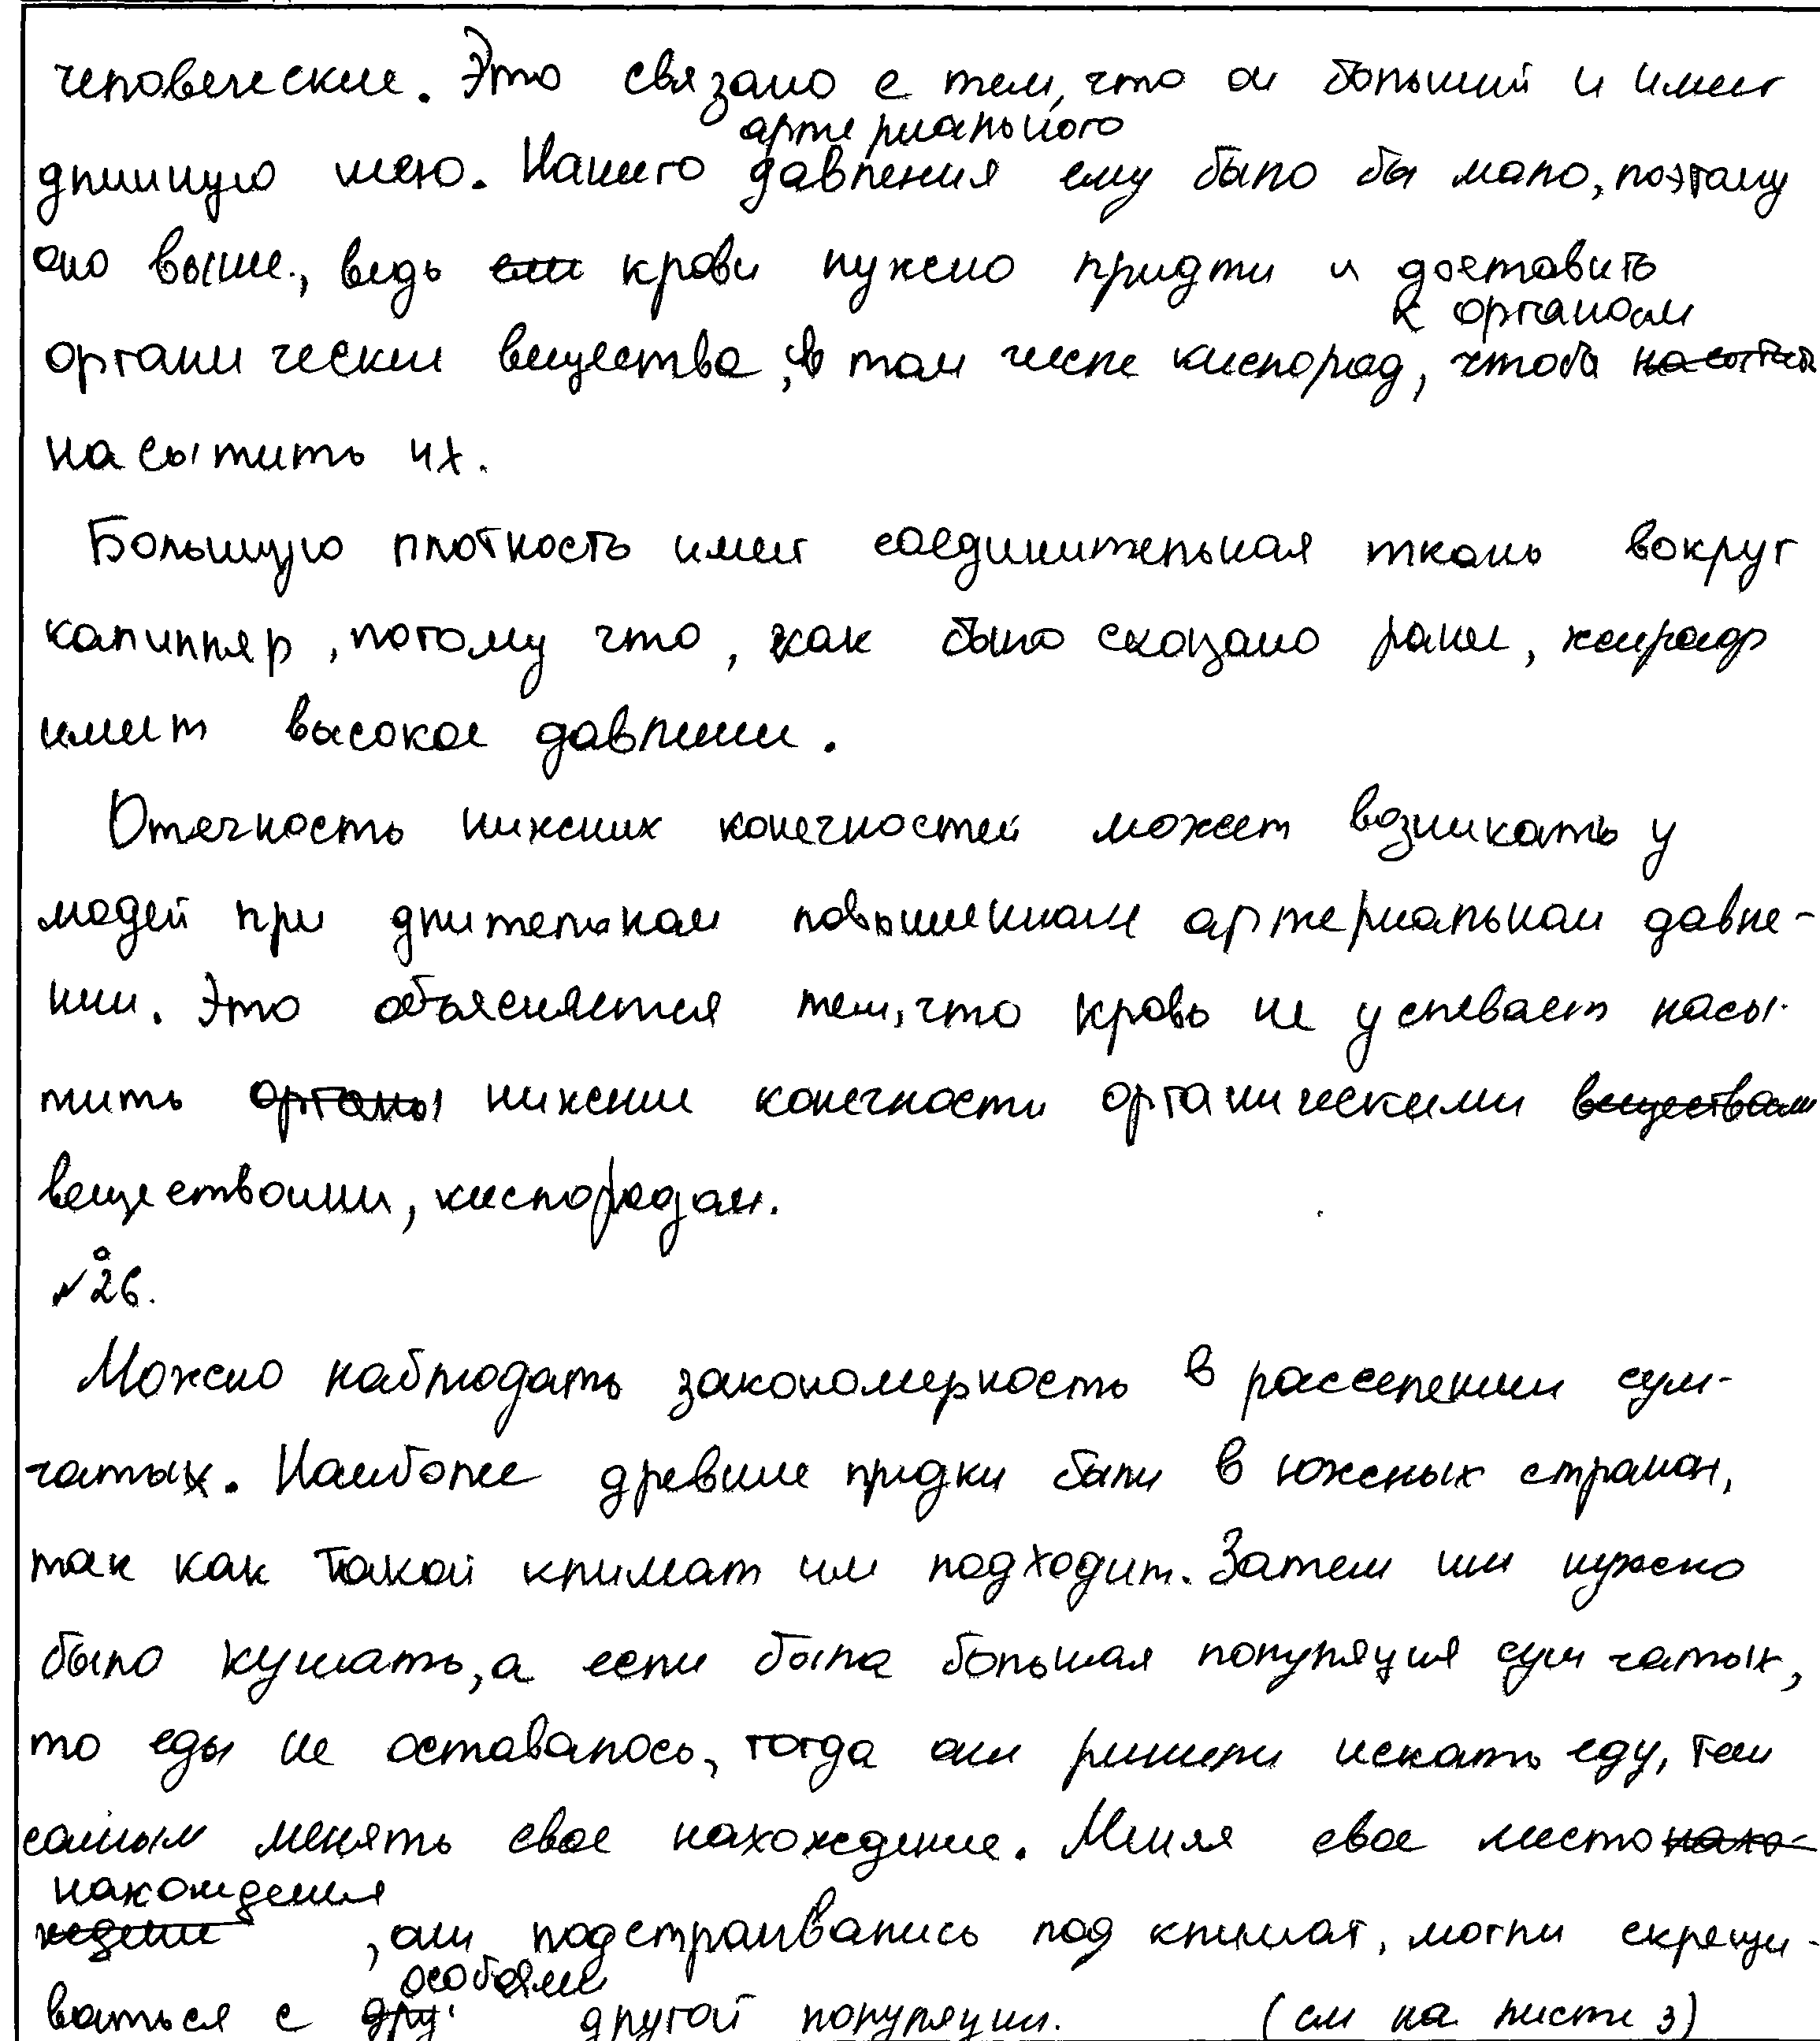 человеческие. Это связано с тем, что он большой и имеет
артериального
длинную шею. Нашего давления ему было бы мало, поэтому
оно выше, ведь если крови нужно придти и доставить
к органам
органические вещества, в том числе кислород, чтобы насытить
насытить их.
Большую плотность имеет соединительная ткань вокруг
капилляр, потому что, как было сказано ранее, жираф
имеет высокое давление.
Отечность нижних конечностей может возникать у
людей при длительном повышенном артериальном давле-
нии. Это объясняется тем, что кровь не успевает насы-
тить органы нижние конечности органическими веществами
веществами, кислородом.
№26.
Можно наблюдать закономерность в расселении сум-
чатых. Наиболее древние предки были в южных странах,
так как такой климат им подходит. Затем им нужно
было кушать, а если была большая популяция сумчатых,
то еды не оставалось, тогда они решили искать еду, тем
самым менять свое нахождение. Меняя свое местонахо-
нахождения
ждение, они подстраивались под климат, могли скрещи-
особями
ваться с дру. другой популяции. (см на листе 3)